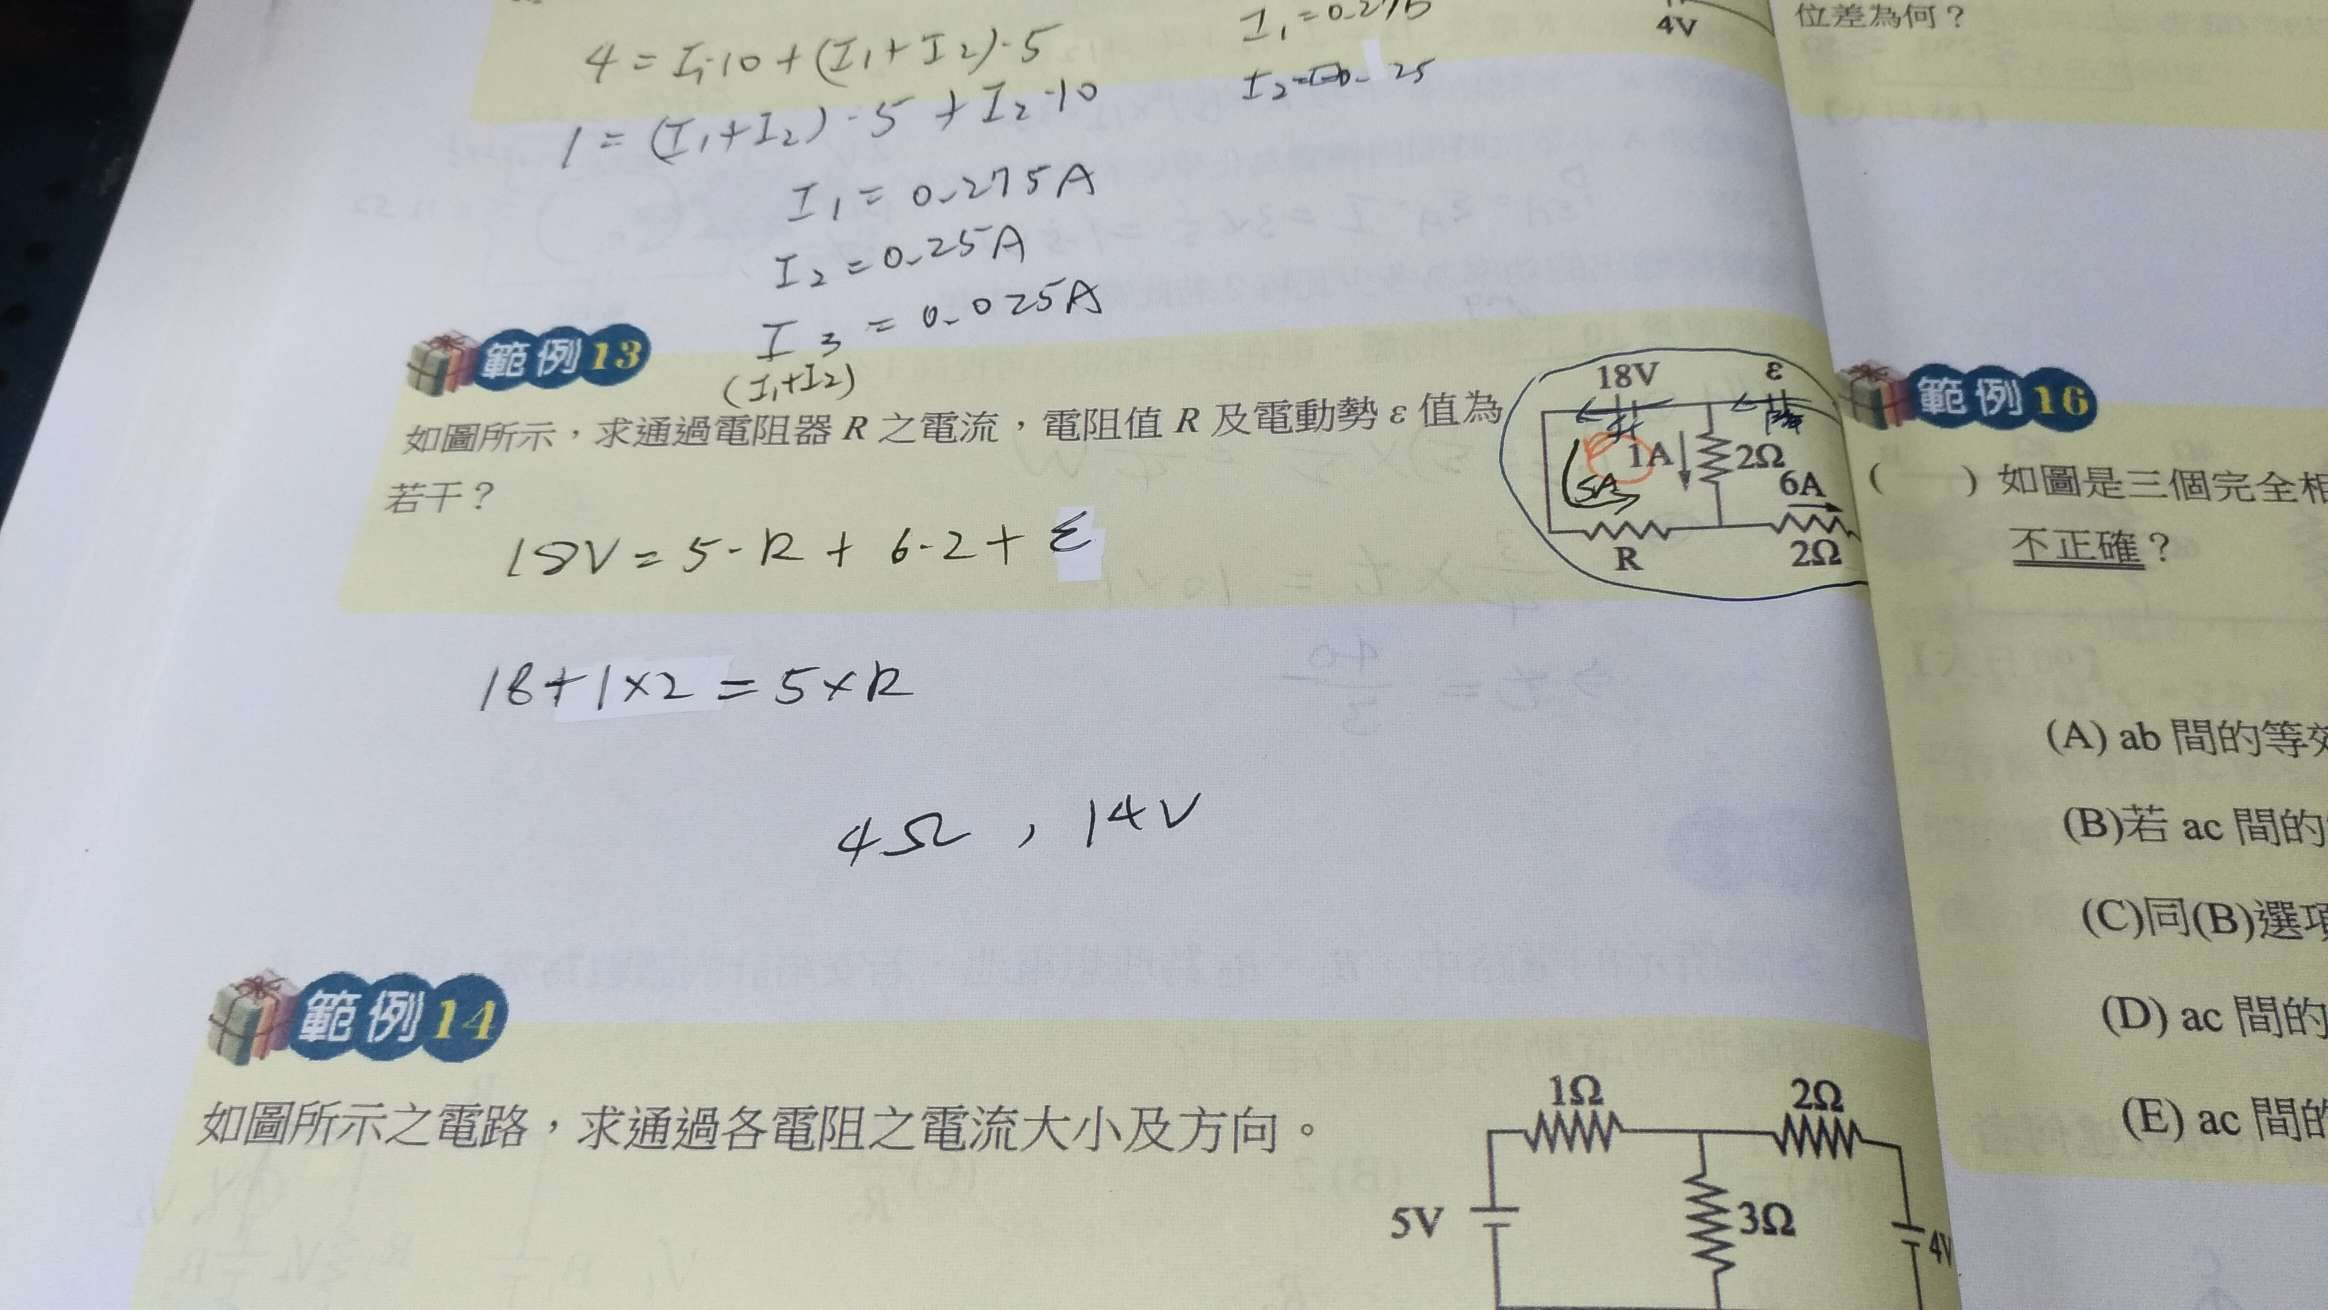 4 = I₁·10 + (I₁+I₂)·5
1 = (I₁+I₂)·5 + I₂·10
I₁ = 0.275A
I₂ = 0.25A
I₃ = 0.025A
(I₁+I₂)
I₁ = 0.275
I₂ = 0.25
4V
範例13
如圖所示,求通過電阻器 R 之電流,電阻值 R 及電動勢 ε 值為
若干?
18V
ε
1A
2Ω
5A
6A
R
2Ω
18V = 5·R + 6·2 + ε
18+1×2 = 5×R
4Ω , 14V
範例14
如圖所示之電路,求通過各電阻之電流大小及方向。
1Ω
2Ω
5V
3Ω
4V
位差為何?
範例16
( ) 如圖是三個完全相
不正確?
(A) ab 間的等效
(B)若 ac 間的
(C)同(B)選項
(D) ac 間的
(E) ac 間的